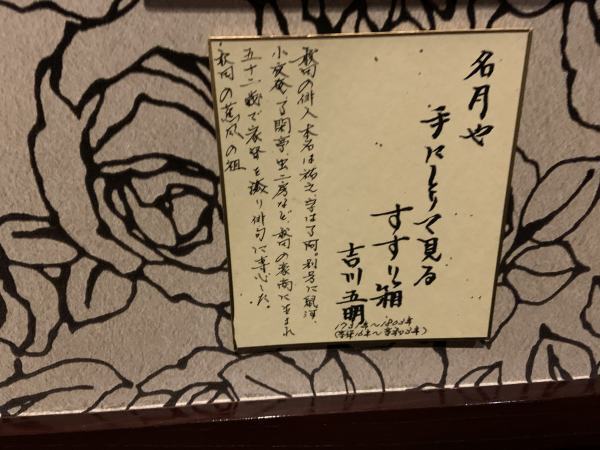 名月や
手にとりて見る
すずり箱
吉川五明
1731年〜1803年
(享保16年〜享和3年)
秋田の俳人 本名は祐之、字は了阿。別号に鼠河、
小夜庵、了閑亭、虫二房など、秋田の豪商に生まれ
五十二歳で家督を譲り俳句に専心した。
秋田の蕉風の祖